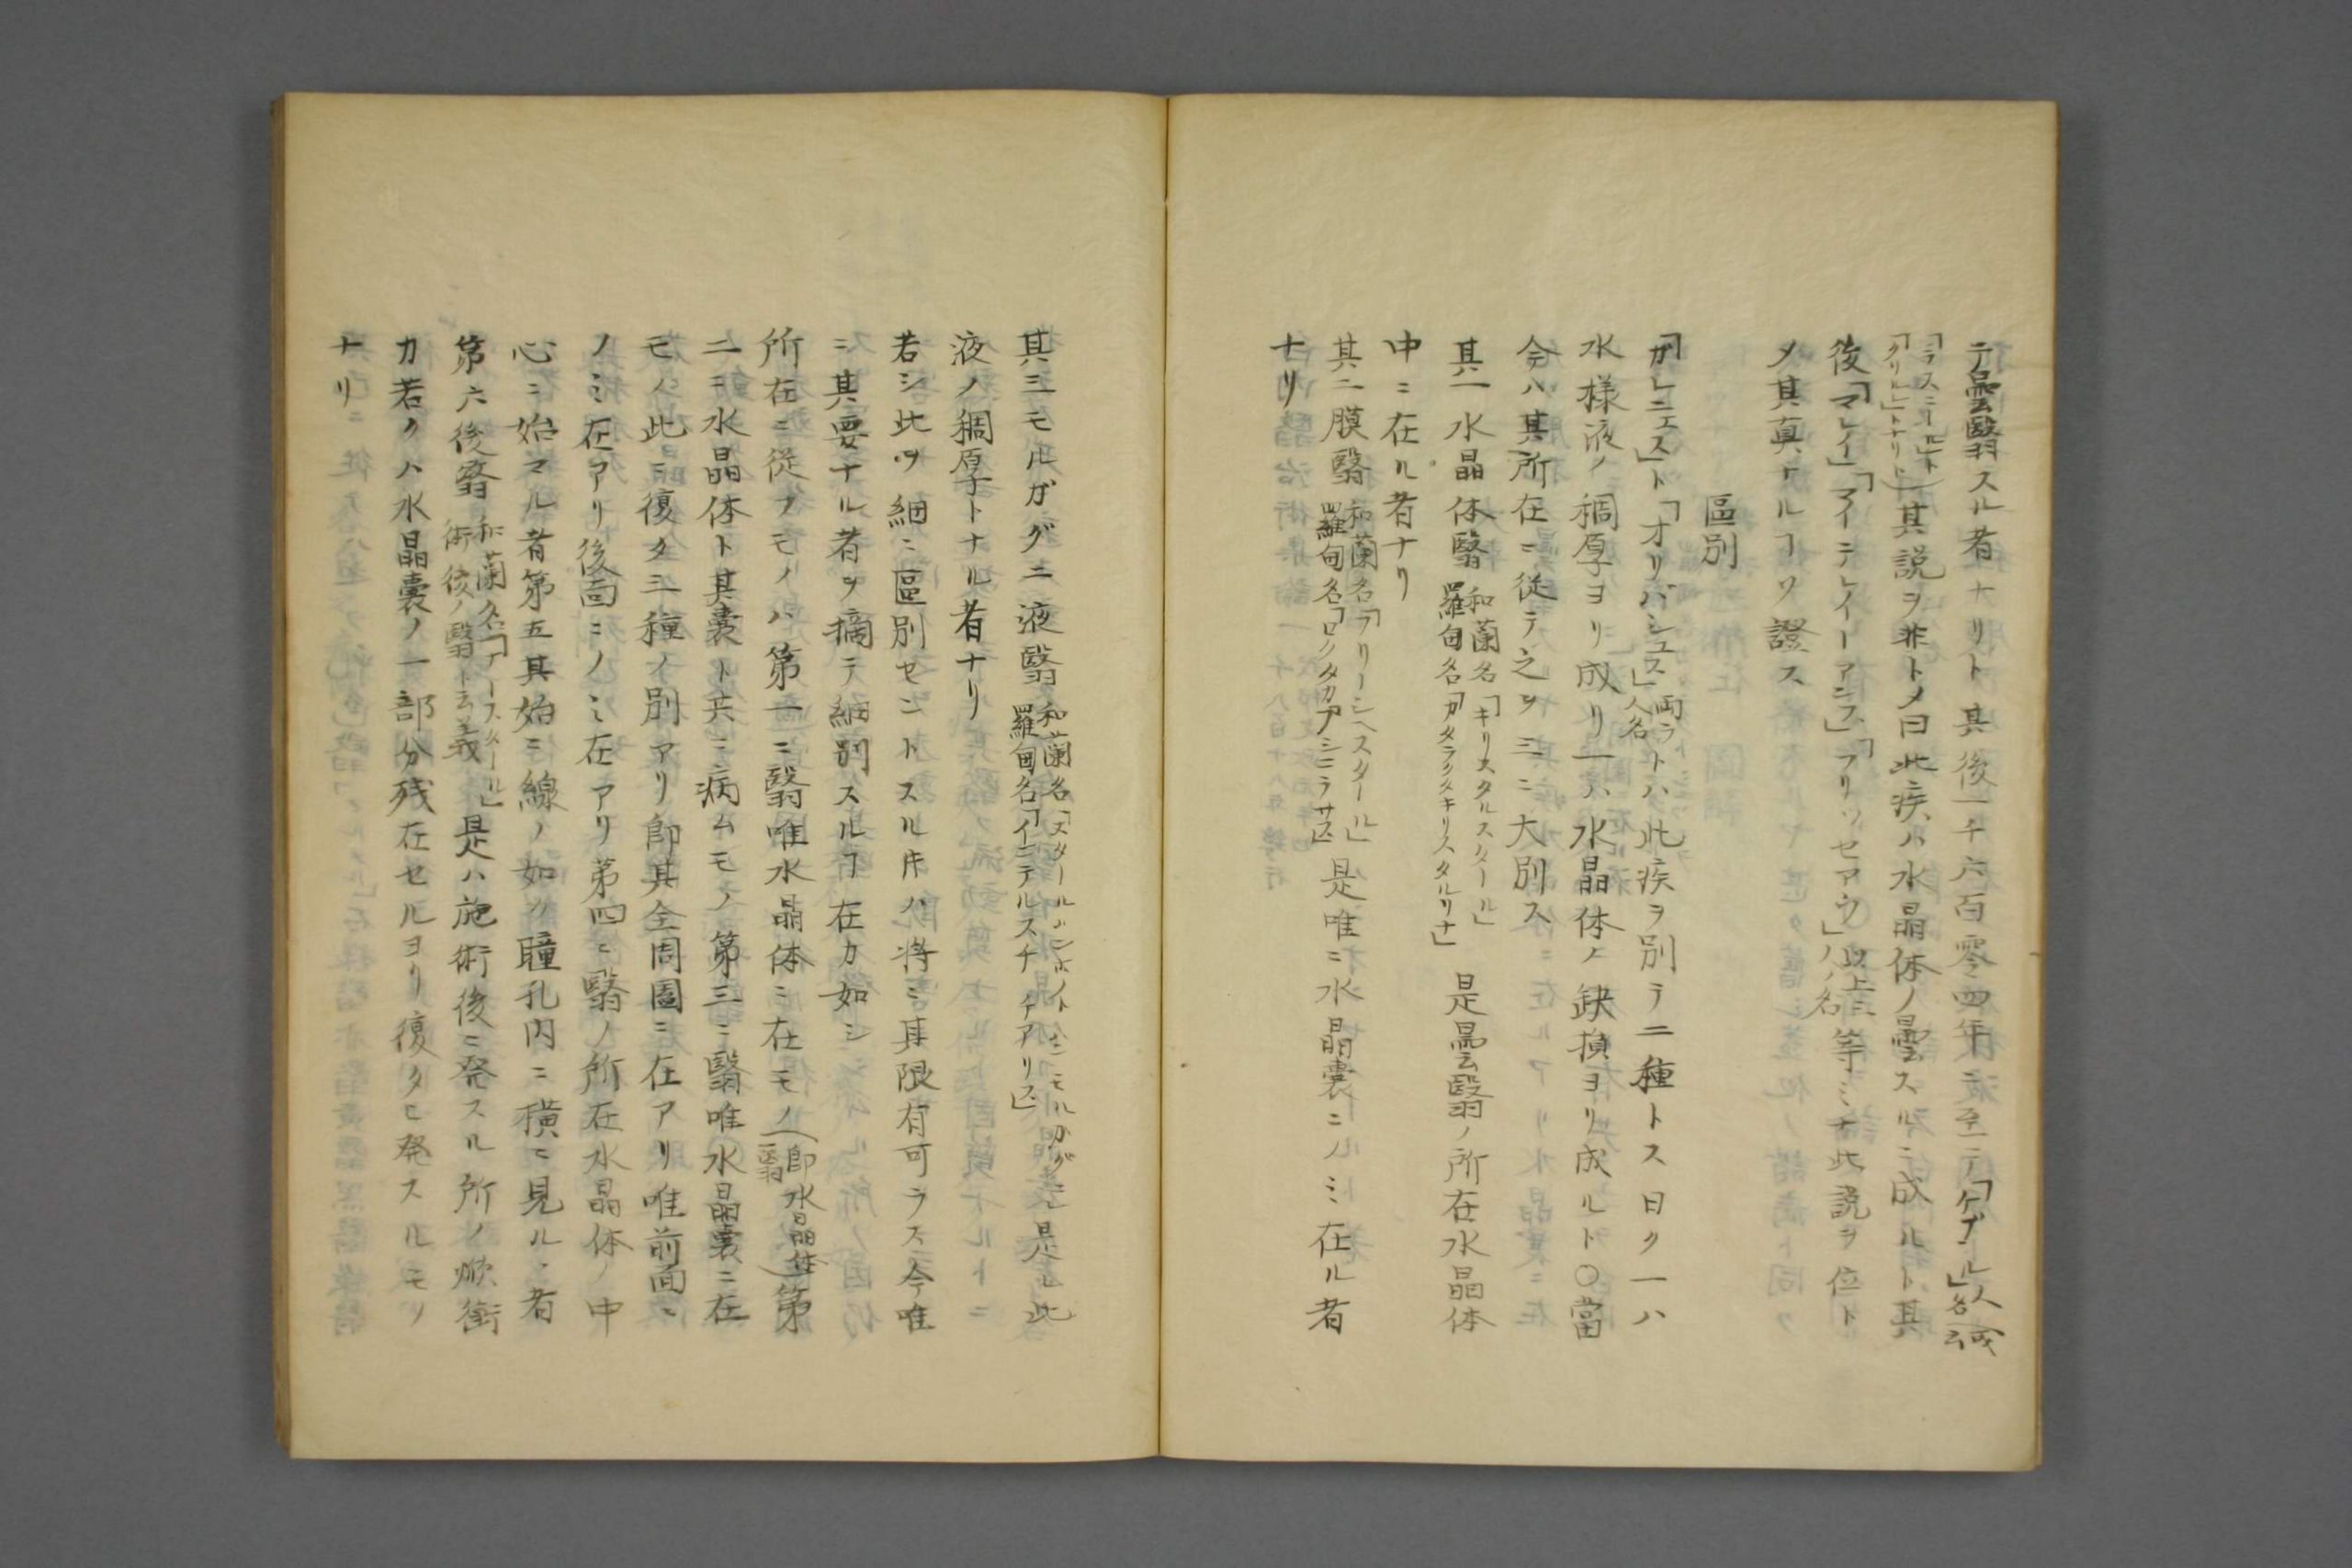 テ曇翳スル者ナリト其後一千六百零四年ニ至テ「ケプ ル」人名或云
「ラスニール」ト「クリルレ」トナリト其説ヲ非トメ曰此疾ハ水晶体ノ曇スルニ成ルト其
後「マレイ」「アイテレイーアンス」「フリッセアウ」以上三人ノ名等ミナ此説ヲ位ト
メ其真ナルヿヲ證ス
區別
「ガレニュスト」「オリバシュス」人名両ラトハ此疾ヲ別テ二種トス曰ク一ハ
水様液ノ稠厚ヨリ成リ一ハ水晶体ノ缺損ヨリ成ルト〇當
今ハ其所在ニ従テ之ヲ三ニ大別ス
其一水晶体翳 和蘭名「キリスタルスタール」羅甸名「カタラクタキリスタルリナ」 是曇翳ノ所在水晶体
中ニ在ル者ナリ
其二膜翳 和蘭名「フリーシヘスタール」羅甸名 是唯ニ水晶嚢ニノミ在ル者
ナリ
其三モルガグニ液翳 和蘭名 羅甸名 是レ此
液ノ稠厚トナル者ナリ
若シ此ヲ細ニ區別セントスル時ハ将ニ其限有可ラス今唯
ニ其要ナル者ヲ摘テ細別スルヿ在カ如シ
所在ニ従フモノハ第一ニ翳唯水晶体ニ在モノ(即水晶体翳)第
二ニ水晶体ト其嚢ト共ニ病ムモノ第三ニ翳唯水晶嚢ニ在
モノ此ニ復タ三種ノ別アリ即其全周圍ニ在アリ唯前面ニ
ノミ在アリ後面ニノミ在アリ第四ニ翳ノ所在水晶体ノ中
心ニ始マル者第五其始ニ線ノ如ク瞳孔内ニ横ニ見ル者
第六後翳 和蘭名「ナースタール」術後ノ翳ト云義 是ハ施術後ニ発スル所ノ焮衝
カ若クハ水晶嚢ノ一部分残在セルヨリ復タヒ発スルモノ
ナリ